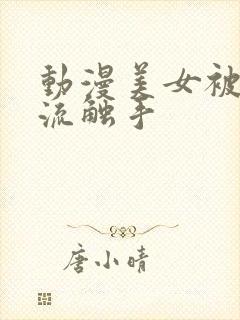 動漫美女被
流触手
唐小晴